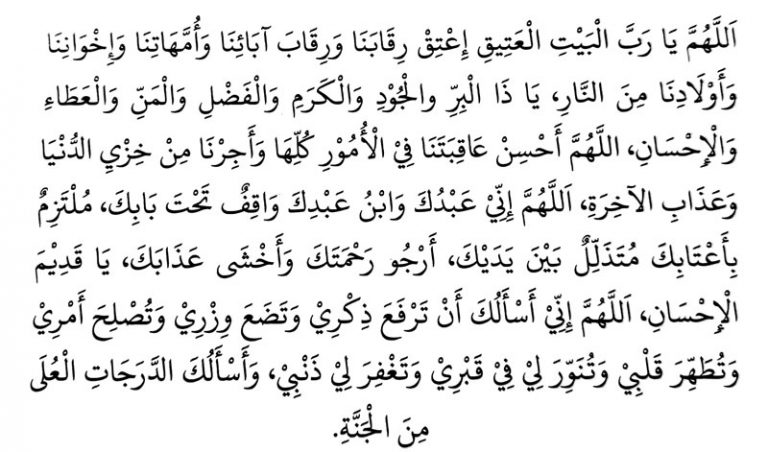 اَللَّهُمَّ يَا رَبَّ الْبَيْتِ الْعَتِيقِ إِعْتِقْ رِقَابَنَا وَرِقَابَ آبَائِنَا وَأُمَّهَاتِنَا وَإِخْوَانِنَا
وَأَوْلَادِنَا مِنَ النَّارِ، يَا ذَا الْبِرِّ والْجُوْدِ وَالْكَرَمِ وَالْفَضْلِ وَالْمَنِّ وَالْعَطَاءِ
وَالْإِحْسَانِ، اللَّهُمَّ أَحْسِنْ عَاقِبَتَنَا فِيْ الْأُمُوْرِ كُلِّهَا وَأَجِرْنَا مِنْ خِزْيِ الدُّنْيَا
وَعَذَابِ الآخِرَةِ، اَللَّهُمَّ إِنِّيْ عَبْدُكَ وَابْنُ عَبْدِكَ وَاقِفٌ تَحْتَ بَابِكَ، مُلْتَزِمٌ
بِأَعْتَابِكَ مُتَذَلِّلٌ بَيْنَ يَدَيْكَ، أَرْجُو رَحْمَتَكَ وَأَخْشَى عَذَابَكَ، يَا قَدِيْمَ
الْإِحْسَانِ، اَللَّهُمَّ إِنِّيْ أَسْأَلُكَ أَنْ تَرْفَعَ ذِكْرِيْ وَتَضَعَ وِزْرِيْ وَتُصْلِحَ أَمْرِيْ
وَتُطَهِّرَ قَلْبِيْ وَتُنَوِّرَ لِيْ فِيْ قَبْرِيْ وَتَغْفِرَ لِيْ ذَنْبِيْ، وَأَسْأَلُكَ الدَّرَجَاتِ الْعُلَى
مِنَ الْجَنَّةِ.